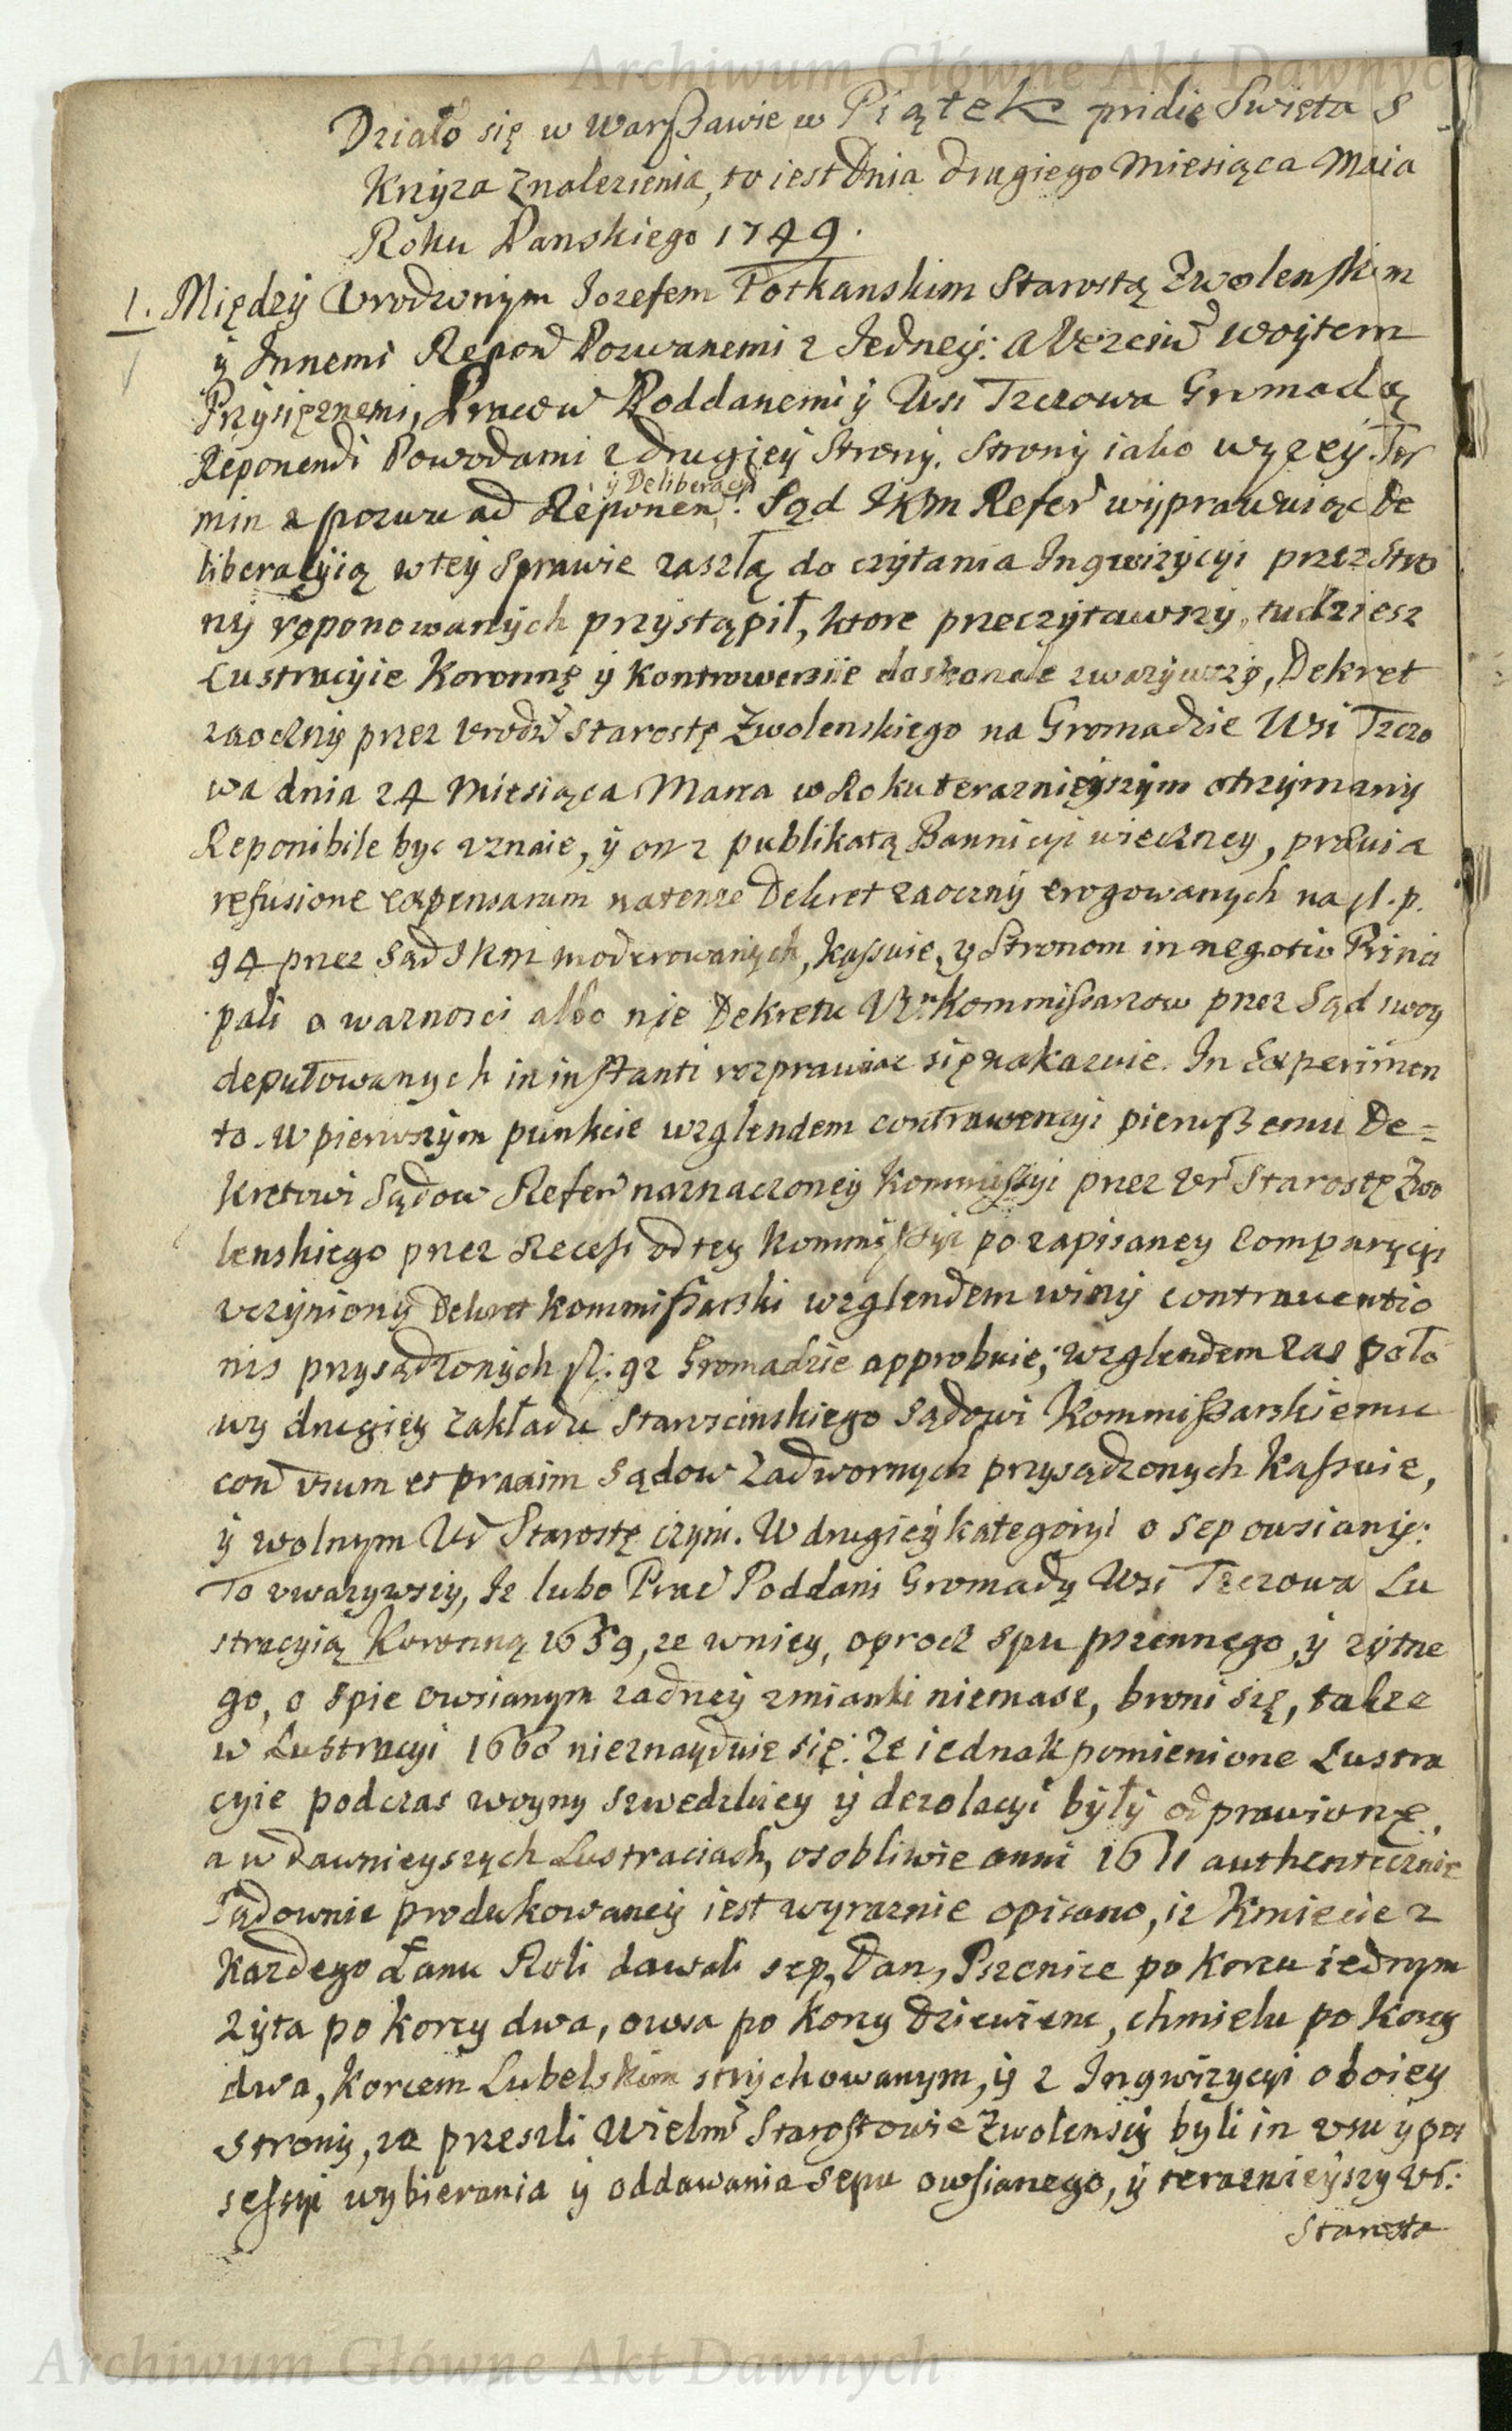 Archiwum Główne Akt Dawnych
Działo się w Warszawie w Piątek pridie Swięta S
Krzyza Znalezienia, to iest Dnia drugiego Miesiąca Maia
Roku Panskiego 1749.
1. Między Urodzonym Iozefem Potkanskim Starostą Zwolenskim
y Innemi Repon̄ Pozwanemi z Iedney: a Uczciw̄ Woytem
Przysięznemi, Pracow̄ Poddanemi y Wsi Tczowa Gromadą
Reponendi Powodami z drugiey Strony. Strony iako wyzey Ter
y Deliberacyi
min z pozwu ad Reponen̄. Sąd JKM Refer̄ wyprawuiąc De
liberacyią w tey Sprawie zaszłą do czytania Ingwizycyi przez Stro
ny reponowanych przystąpił, ktore przeczytawszy, tudziesz
Lustracyie Koronnę y Kontrowersiie doskonale zwazywszy, Dekret
zaoczny przez Urodz̄ Starostę Zwolenskiego na Gromadzie Wsi Tczo
wa dnia 24 Miesiąca Marca w Roku teraznieyszym otrzymany
Reponibile byc uznaie, y on z publikatą Bannicyi wieczney, prævia
refusione expensarum na tenze Dekret zaoczny erogowanych na zł. p.
94 przez Sąd JKM moderowanych, kassuie, y Stronom in negotio Princi
pali o waznosci albo nie Dekretu Ur. Kommissarzow przez Sąd swoy
deputowanych in instanti rozprawiac się nakazuie. In Experimen
to. W pierwszym punkcie wzglendem contrawencyi pierwszemu De=
kretowi Sądow Refer̄ naznaczoney Kommissyi przez Ur̄ Starostę Zwo
lenskiego przez Recess od tey Kommissyi po zapisaney Comparycyi
uczyniony Dekret Kommissarski wzglendem winy contraventio
nis przysądzonych zł: 92 Gromadzie approbuie; wzglendem zas poło
wy drugiey zakładu Starościnskiego Sądowi Kommissarskiemu
con̄ usum et praxim Sądow Zadwornych przysądzonych Kassuie,
y wolnym Ur̄ Starostę czyni. W drugiey kategoryi o sep owsiany:
To uwazywszy, Iz lubo Prac̄ Poddani Gromady Wsi Tczowa Lu
stracyią Koronną 1659, ze w niey, oprocz spu pszennego, y zytne
go, o spie owsianym zadney zmianki niemasz, broni się, takze
w Lustracyi 1660 nieznayduie się: Ze iednak pomienione Lustra
cyie podczas woyny Szwedzkiey y dezolacyi były odprawione,
a w dawnieyszych Lustraciach, osobliwie anni 1611 authentecznie
Sądownie produkowaney iest wyraznie opisano, iz Kmiecie z
kazdego Łanu Roli dawali sep, Dan, Pszenice po korcu iednym
zyta po korcy dwa, owsa po korcy dziewienc, chmielu po korcy
dwa, korcem Lubelskim strychowanym, y z Ingwizycyi oboiey
strony, ze przeszli Wielm̄ Starostowie Zwolenscy byli in usu y pos
sessyi wybierania y oddawania sepu owsianego, y terazniejszy Ur:
Starosta
Archiwum Główne Akt Dawnych